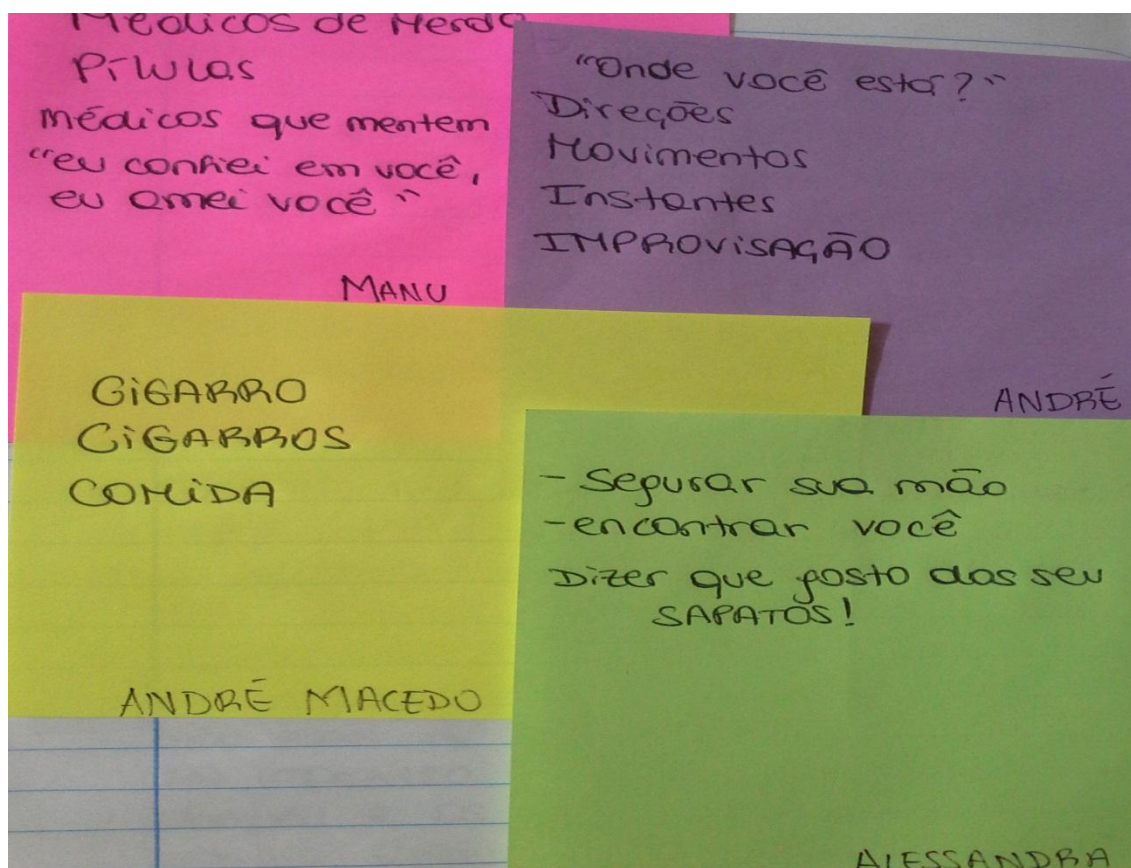 Médicos de Merda
Pílulas
médicos que mentem
"eu confiei em você,
eu amei você"
MANU
"Onde você está?"
Direções
Movimentos
Instantes
IMPROVISAÇÃO
ANDRÉ
CIGARRO
CIGARROS
COMIDA
ANDRÉ MACEDO
- Segurar sua mão
- encontrar você
Dizer que gosto dos seu
SAPATOS!
ALESSANDRA